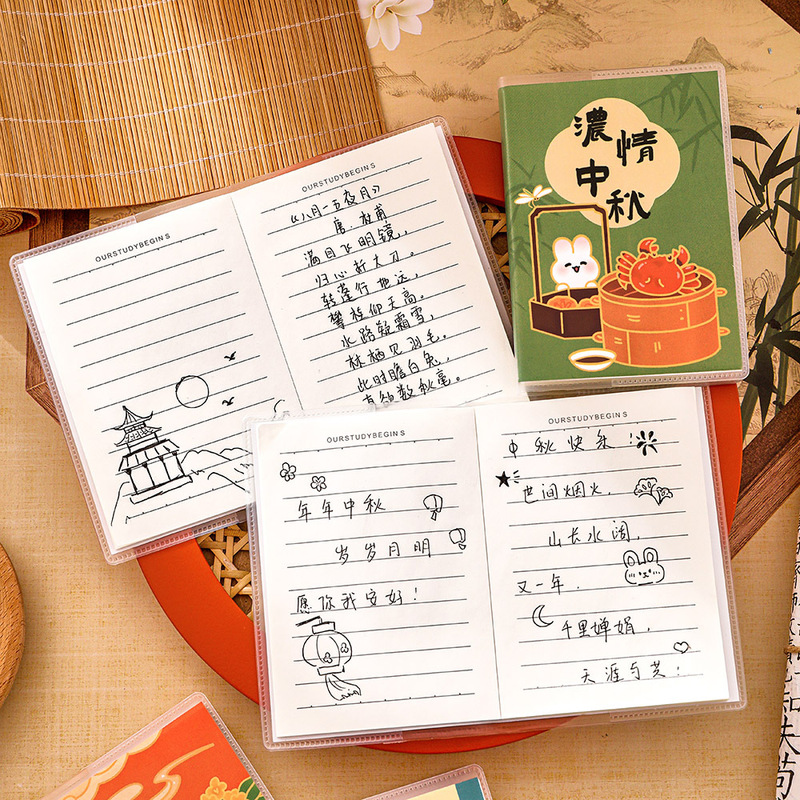 濃情
中秋
OURSTUDYBEGINS
OURSTUDYBEGINS
《八月十五夜月》
唐.杜甫
满目飞明镜,
归心折大刀。
转蓬行地远,
攀桂仰天高。
水路疑霜雪,
林栖见羽毛。
此时瞻白兔,
直欲数秋毫。
OURSTUDYBEGINS
年年中秋
岁岁月明
愿你我安好!
OURSTUDYBEGINS
中秋快乐!
世间烟火,
山长水阔,
又一年.
千里婵娟,
天涯与共;